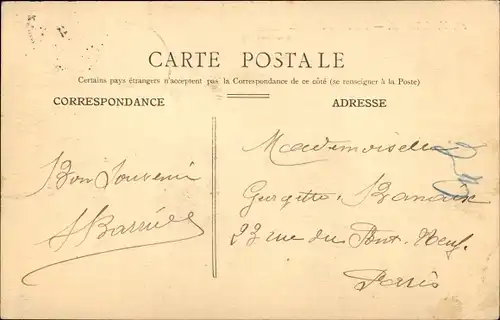 CARTE POSTALE
Certains pays étrangers n'acceptent pas la Correspondance de ce côté (se renseigner à la Poste)
CORRESPONDANCE
ADRESSE
Bon Souvenir
Mademoiselle
23 rue du Pont-Neuf.
Paris